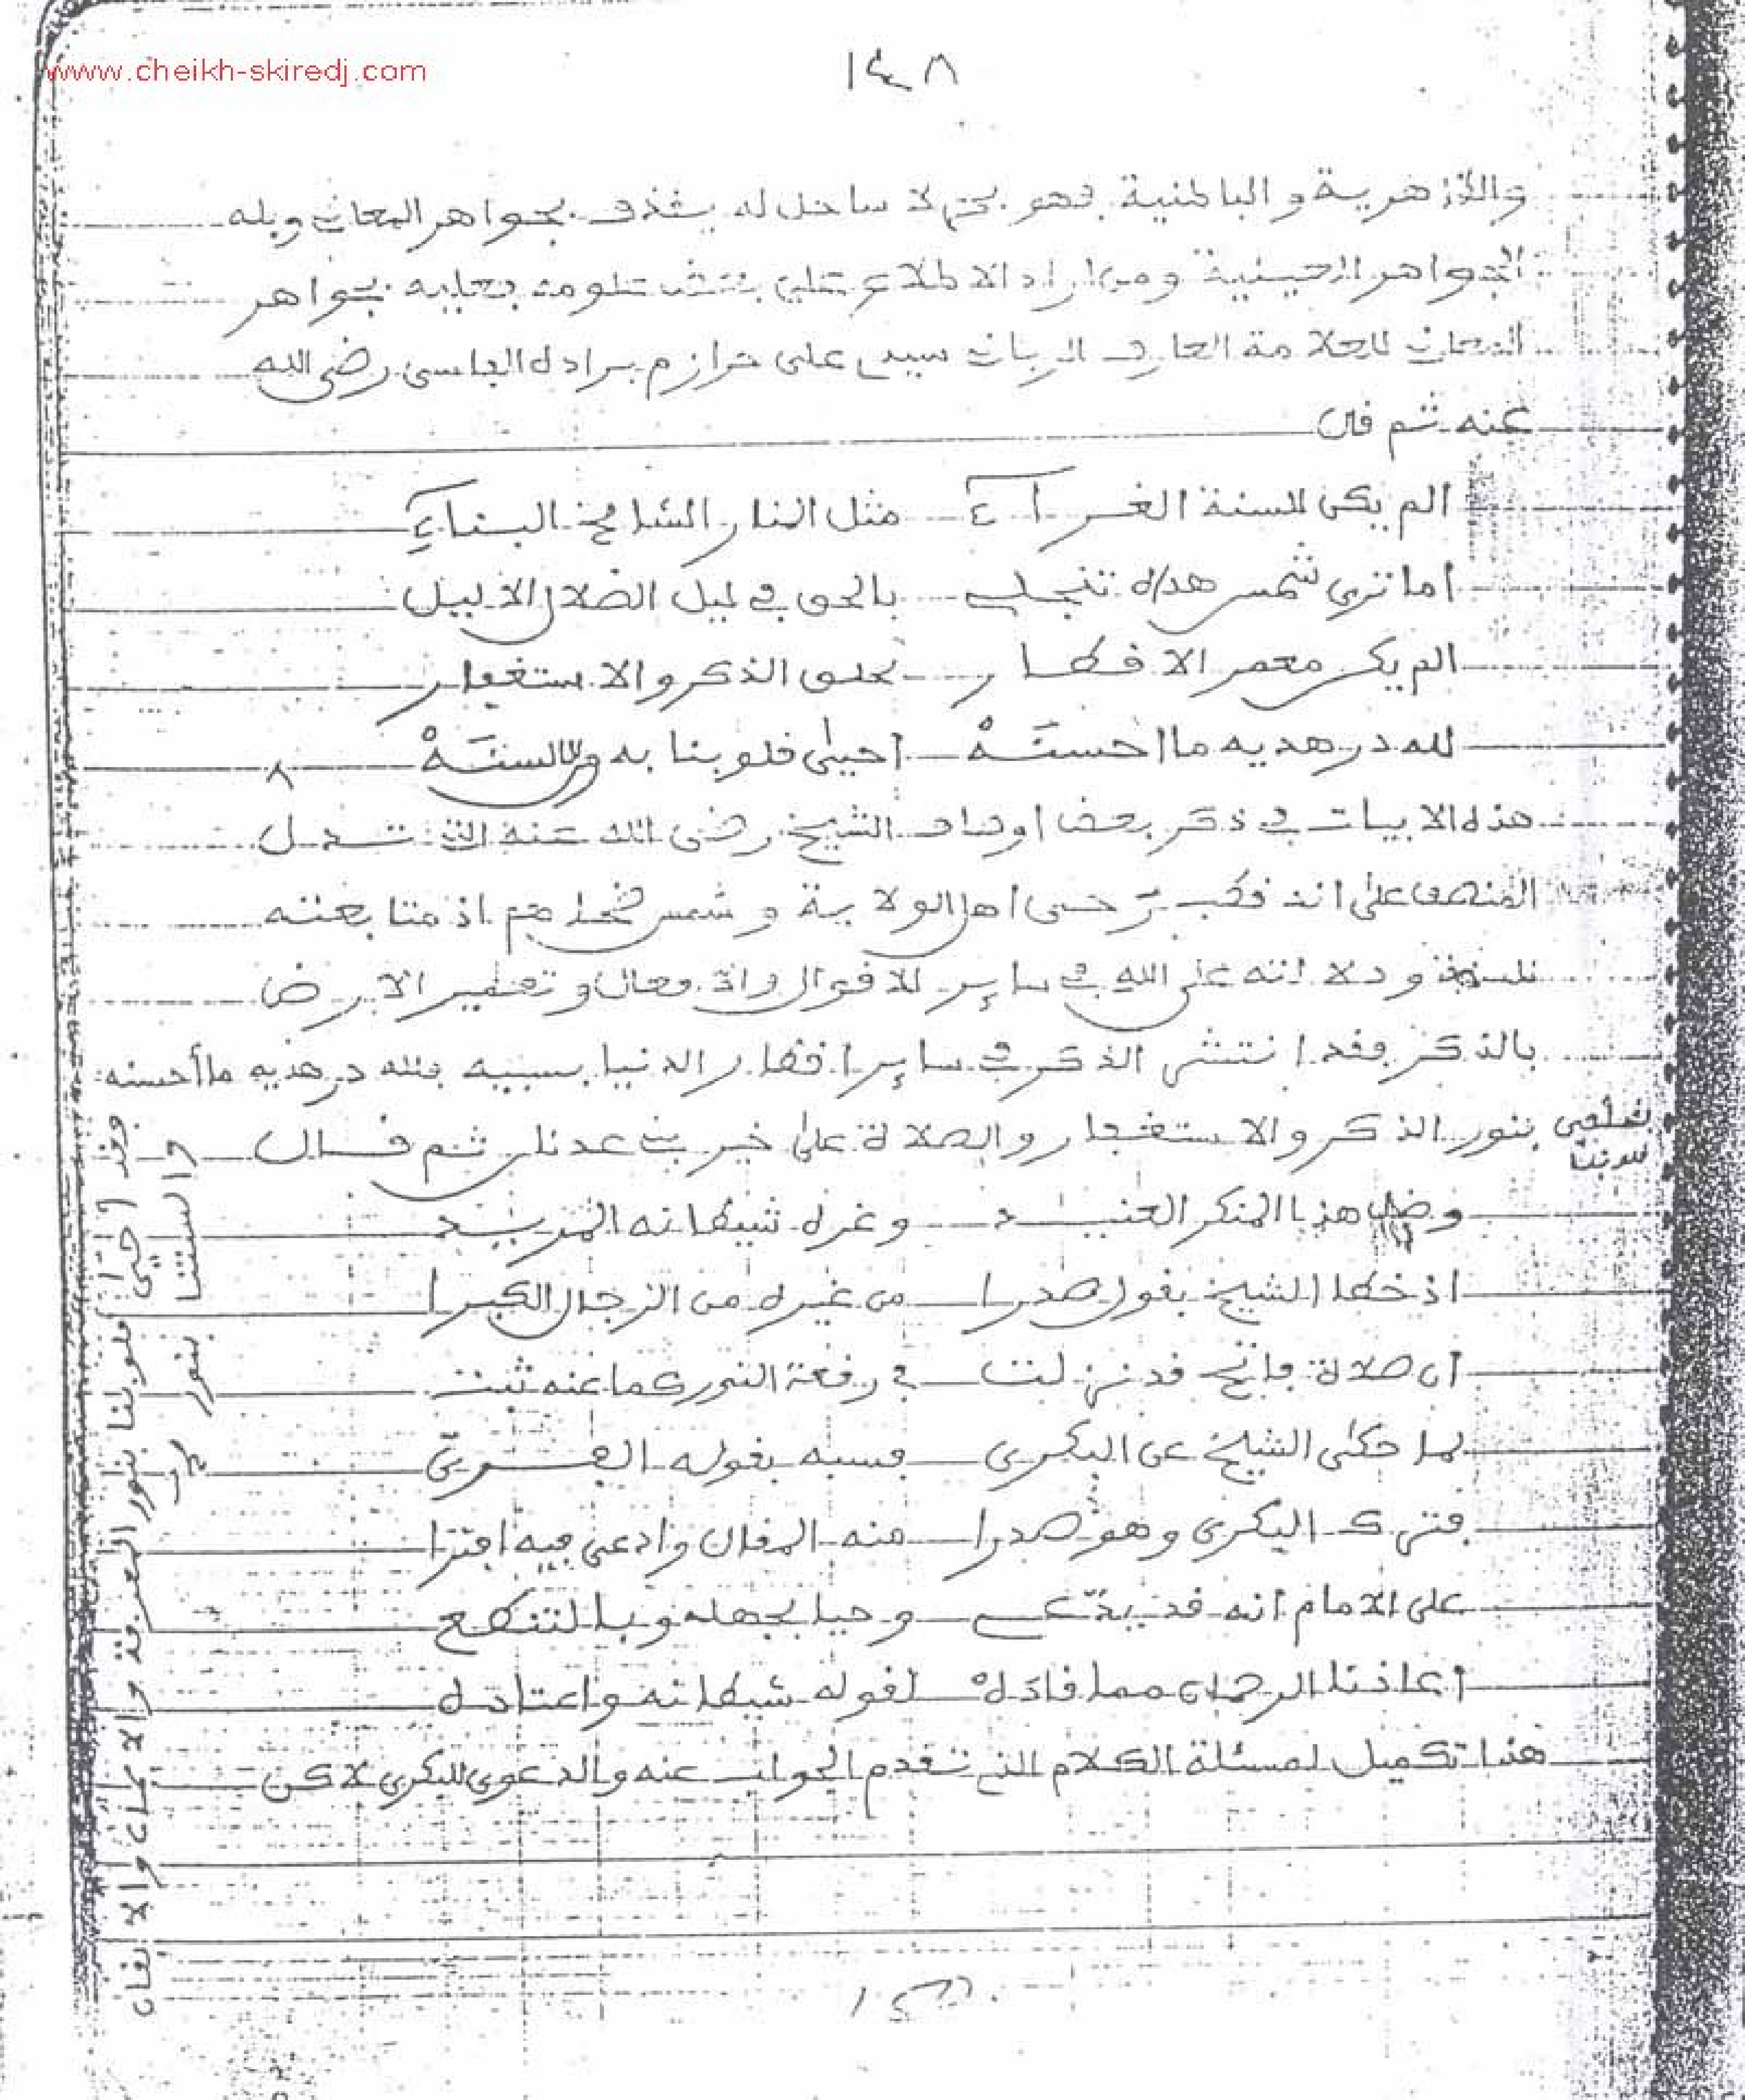 www.cheikh-skiredj.com
١٤٨
والأزهرية والباطنية فهو بحر لا ساحل له يقذف بجواهر المعاني وبله
الجواهر الحسية ومن اراد الاطلاع على علومه فعليه بجواهر
المعاني للعلامة العارف الرباني سيدي علي حرازم برادة الفاسي رضي الله
عنه ثم قال
الم يكن للسنة الغراء مثل المنار الشامخ البناء
اما ترى شمس هداه تنجلي بالحق في ليل الضلال الأليل
الم يكن معمر الاقطار بحلق الذكر والاستغفار
لله در هديه ما احسنه احيى قلوبنا به والالسنه
هذه الابيات في ذكر بعض اوصاف الشيخ رضي الله عنه التي تدل
المنصف على انه قطب رحى اهل الولاية وشمس ضحاهم اذ متابعته
للسنة ودلالته على الله في ساير الاقوال والافعال وتعمير الارض
بالذكر فقد انتشر الذكر في ساير اقطار الدنيا بسببه فلله در هديه ما أحسنه
فقد احيى قلوبنا بنور المعرفة والايمان والايقان
والسنتنا بنور
بنور الذكر والاستغفار والصلاة على خير بني عدنان ثم قال
قلوبنا
وضل هذا المنكر العنيد وغره شيطانه المريد
اذ خطا الشيخ بقول صدرا من غيره من الرجال الكبرا
ان صلاة فاتح قد نزلت في رقعة النور كما عنه ثبت
لما حكى الشيخ عن البكري فسبه بقوله الفري
فترك البكري وهو صدرا منه المقال وادعى فيه افترا
على الامام انه قد يدعي وحيا بجهله وبالتنطع
اعاذنا الرحمان مما قاده لقوله شيطانه واعتاده
هنا تكميل لمسئلة الكلام التي تقدم الجواب عنه والدعوى للبكري لاكن